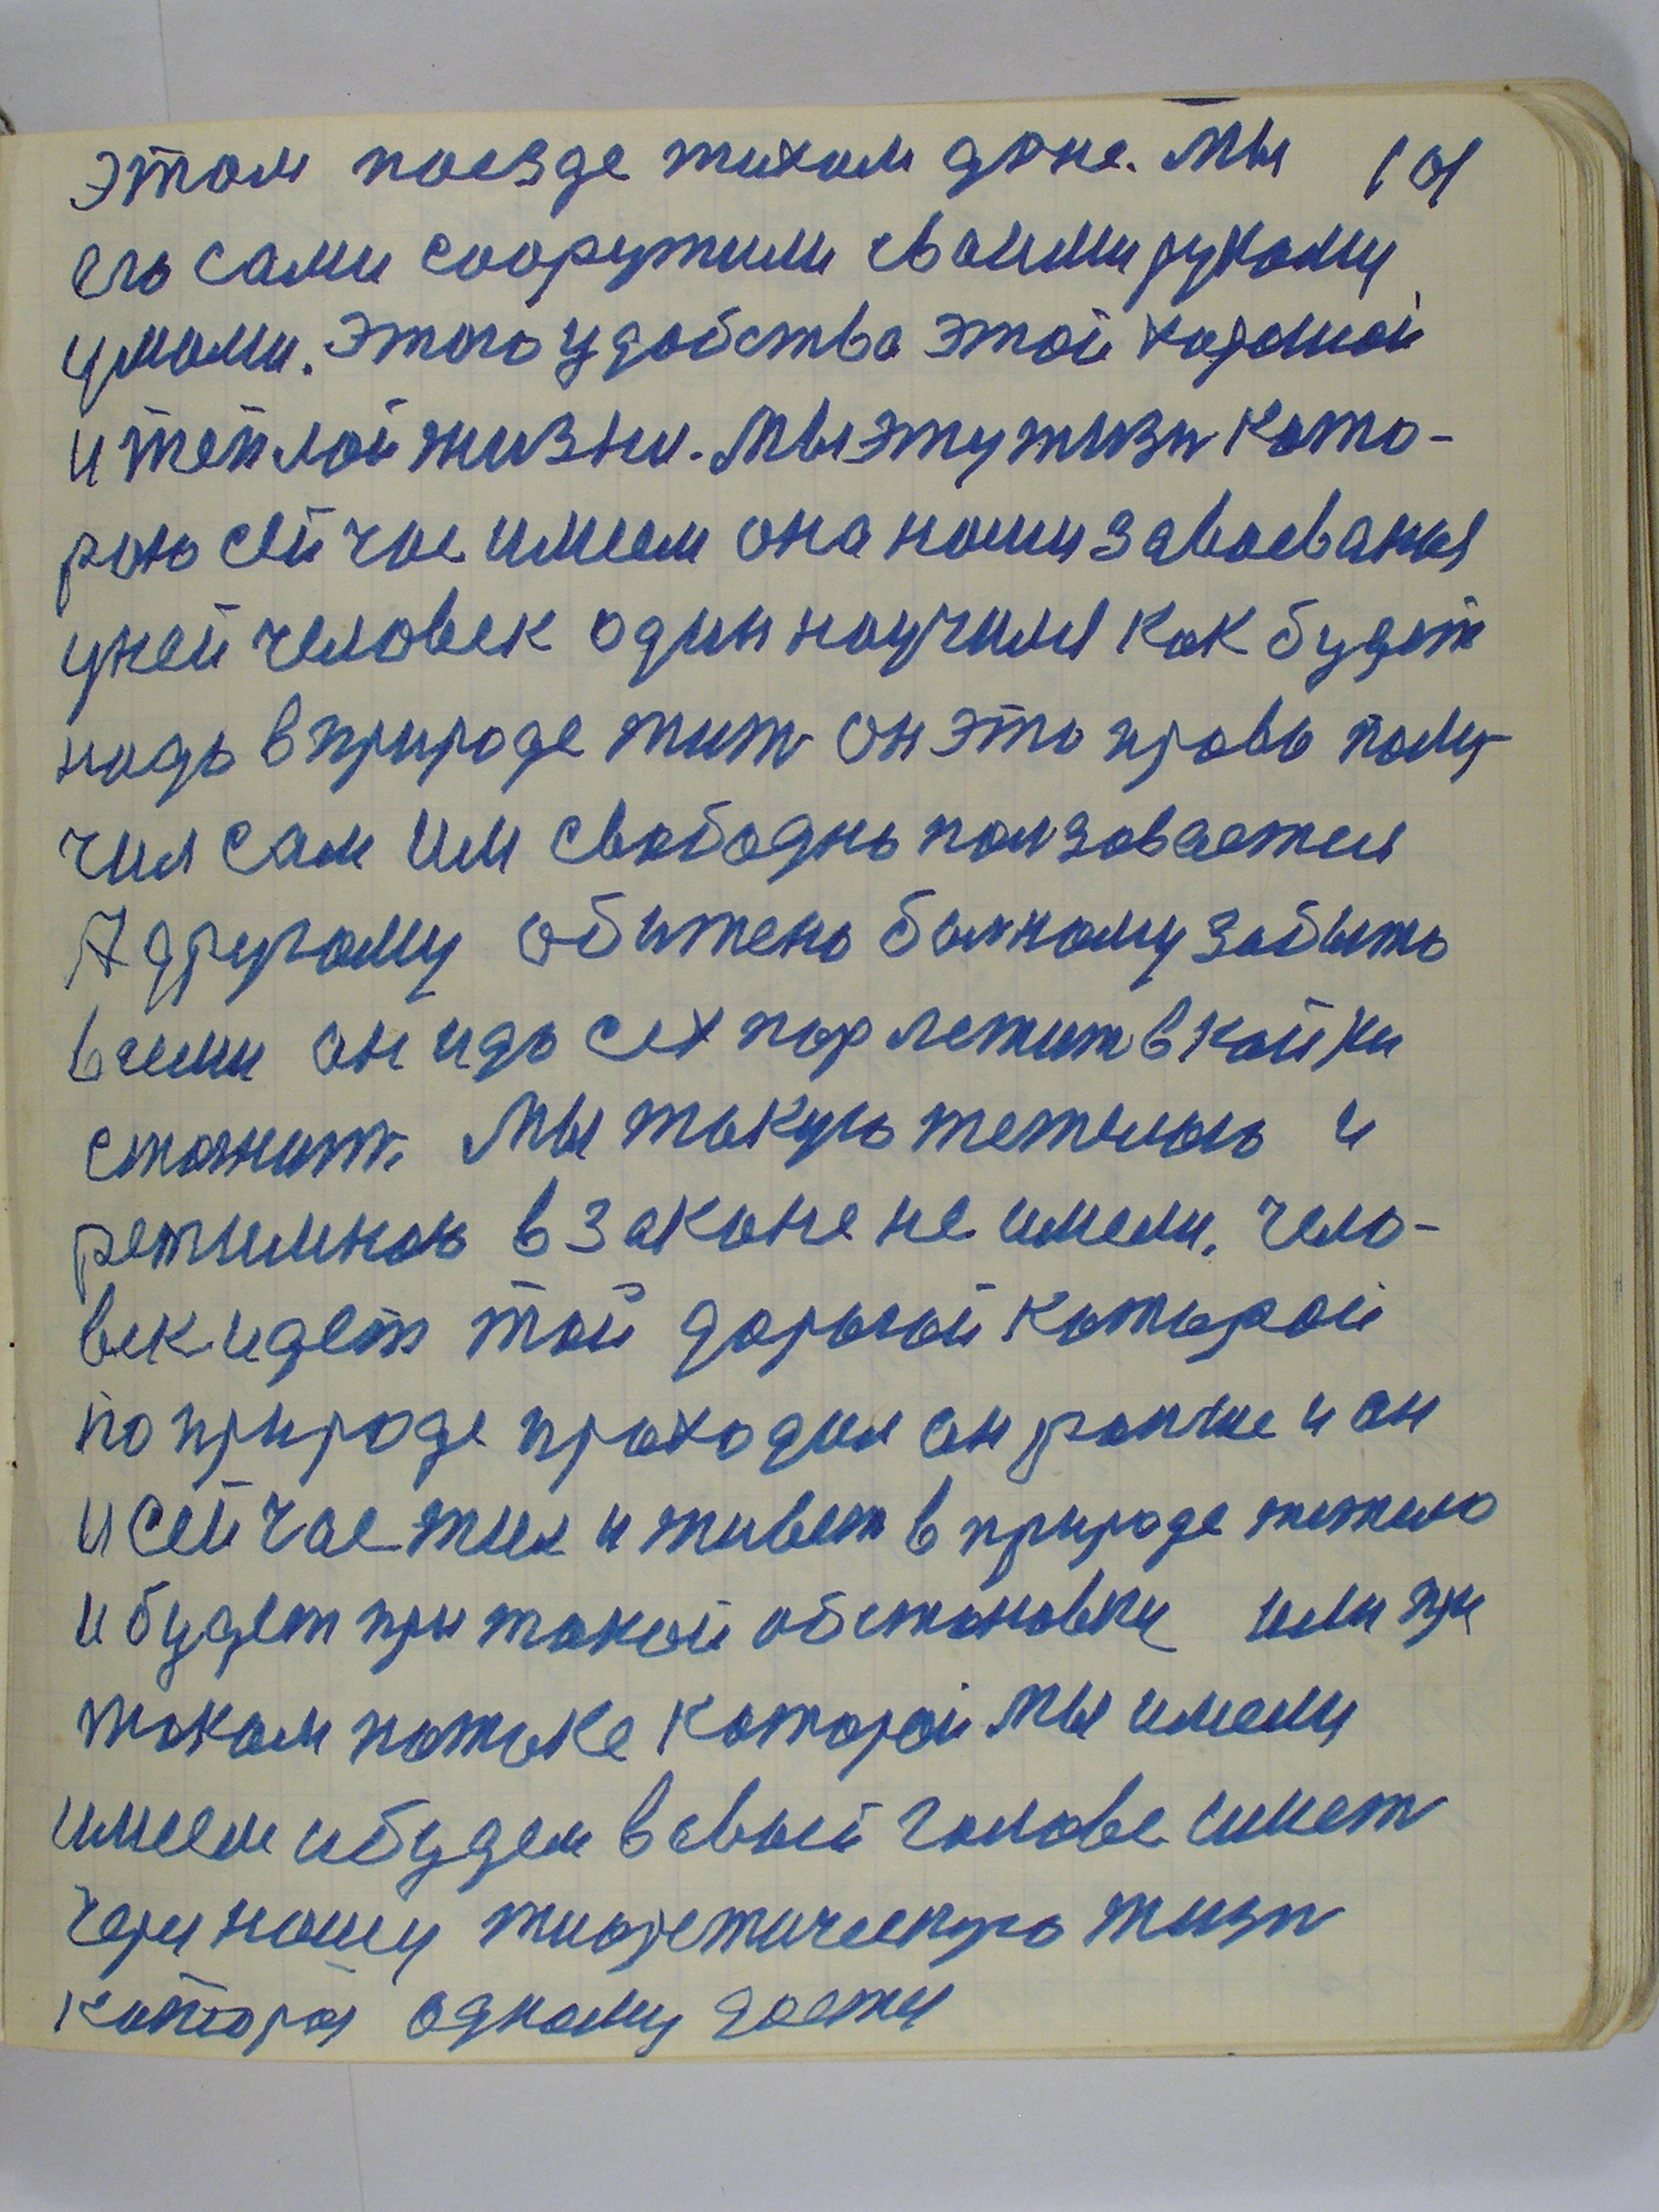 этом поезде тихом доне. Мы 101
его сами сооружили своими рукаму
умами. Этого удобства этой хорошой
и тёплой жизни. Мы эту жизн кото-
рою сейчас имеем она наши завоевания
у ней человек один научился как будет
надо в природе жит он это право полу-
чил сам им свободно ползовается
А другому обижено болному забыто
всеми он идо сех пор лежит в койки
стогнит. Мы такую тежолою и
режимною в законе не имели. Чело-
век идет той дорогой которой
по природе проходил он ранше и он
и сейчас жил и живет в природе тежело
и будет при такой обстановки или при
таком потоке которой мы имели
имеем и будем в своей голове имет
через нашу тиоретическую жизн
которая одному дается